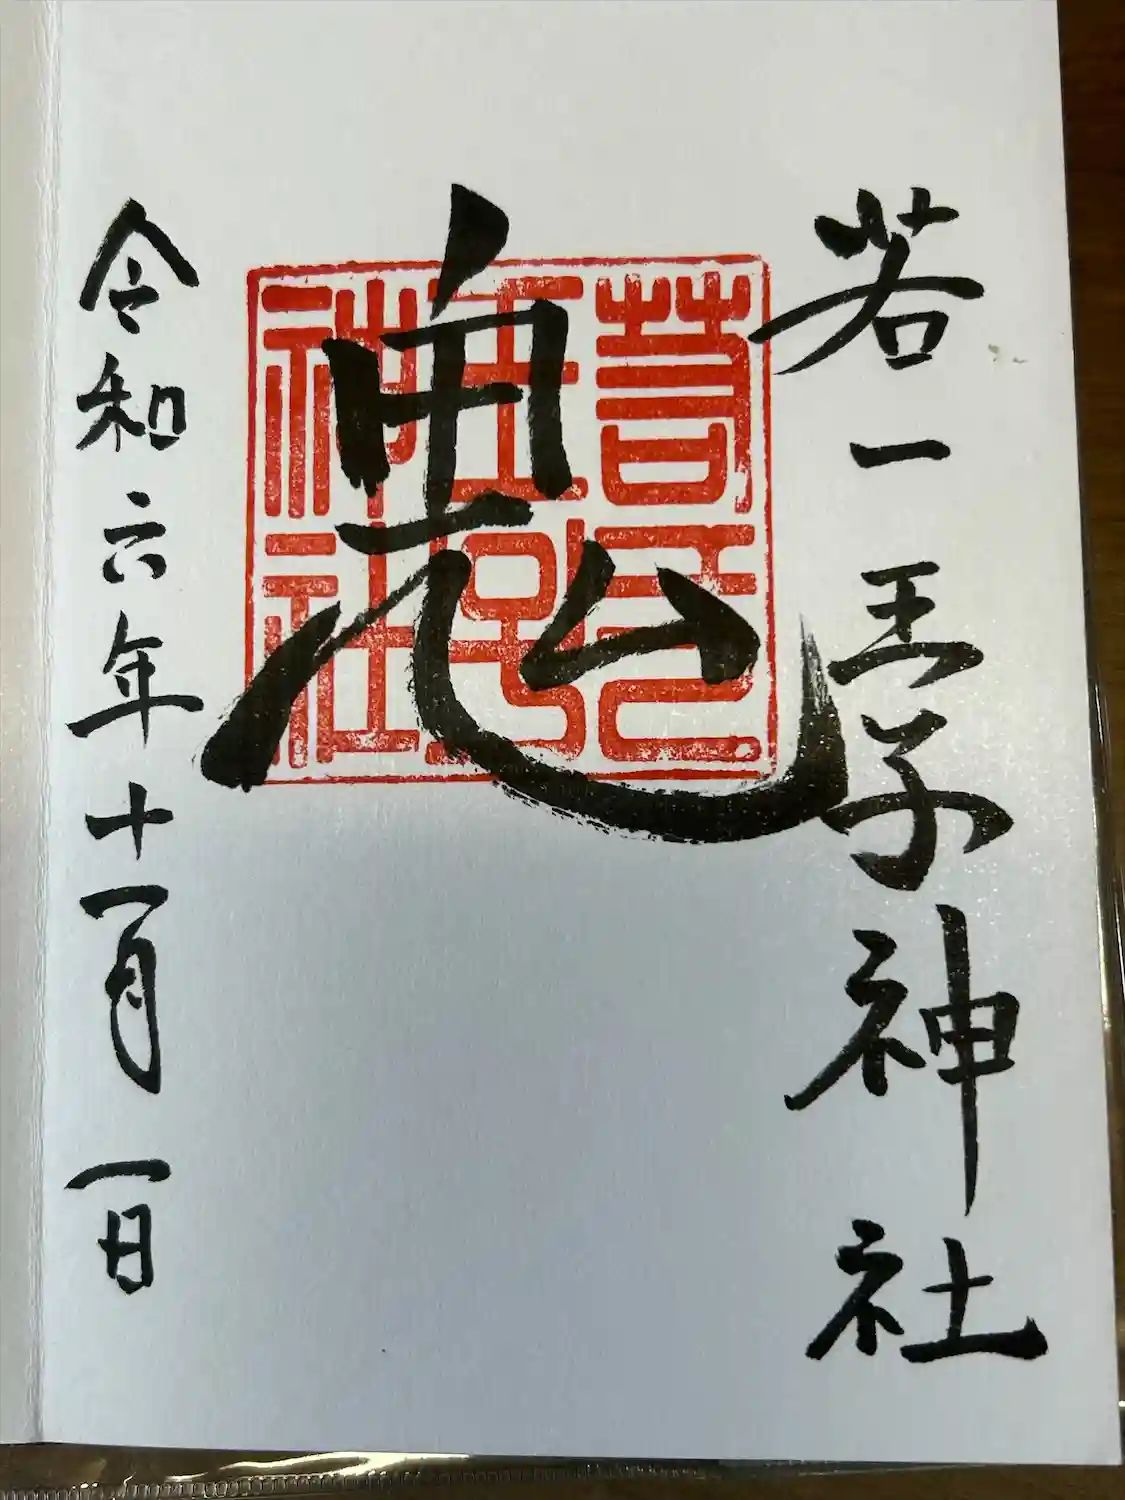 若一王子神社
鬼
若一
王子
神社
令和六年十一月一日